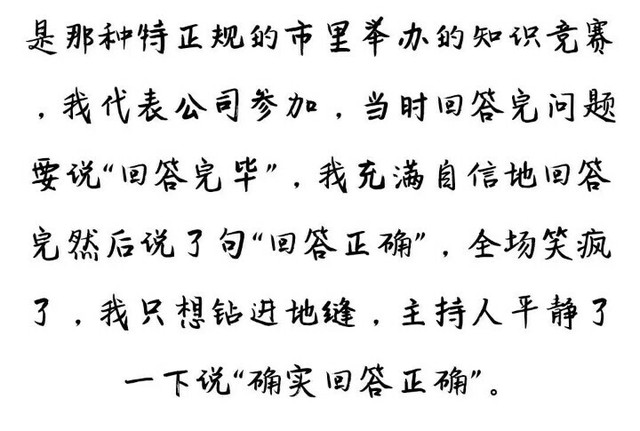 是那种特正规的市里举办的知识竞赛
，我代表公司参加，当时回答完问题
要说“回答完毕”，我充满自信地回答
完然后说了句“回答正确”，全场笑疯
了，我只想钻进地缝，主持人平静了
一下说“确实回答正确”。